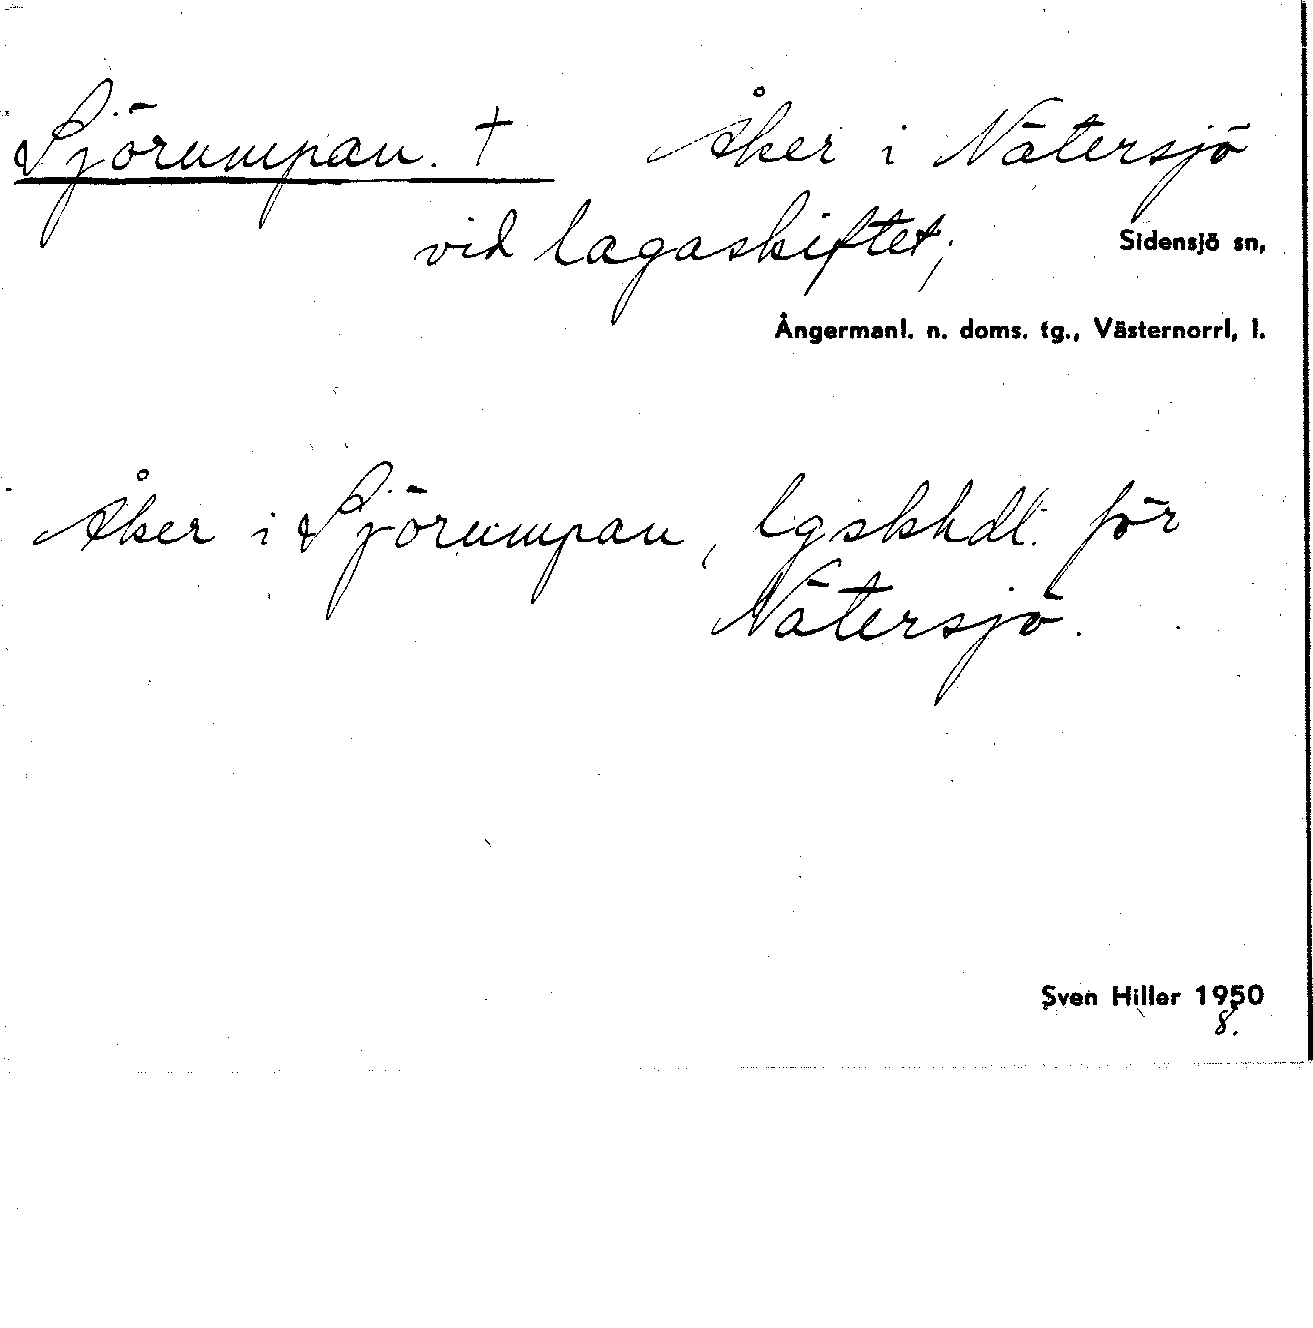 Sjörumpan. † Åker i Nätersjö
vid lagaskiftet;
Sidensjö sn,
Ångermanl. n. doms. tg., Västernorrl, l.
Åker i Sjörumpan, lgskhdl. för
Nätersjö.
Sven Hiller 1950
8.